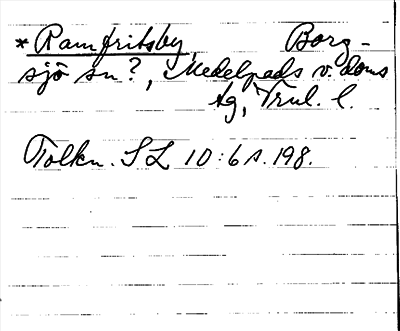 * Ramfritsby, Borg-
sjö sn?, Medelpads v. doms
tg, Vnl. l.
Tolkn. SL 10:6 s. 198.